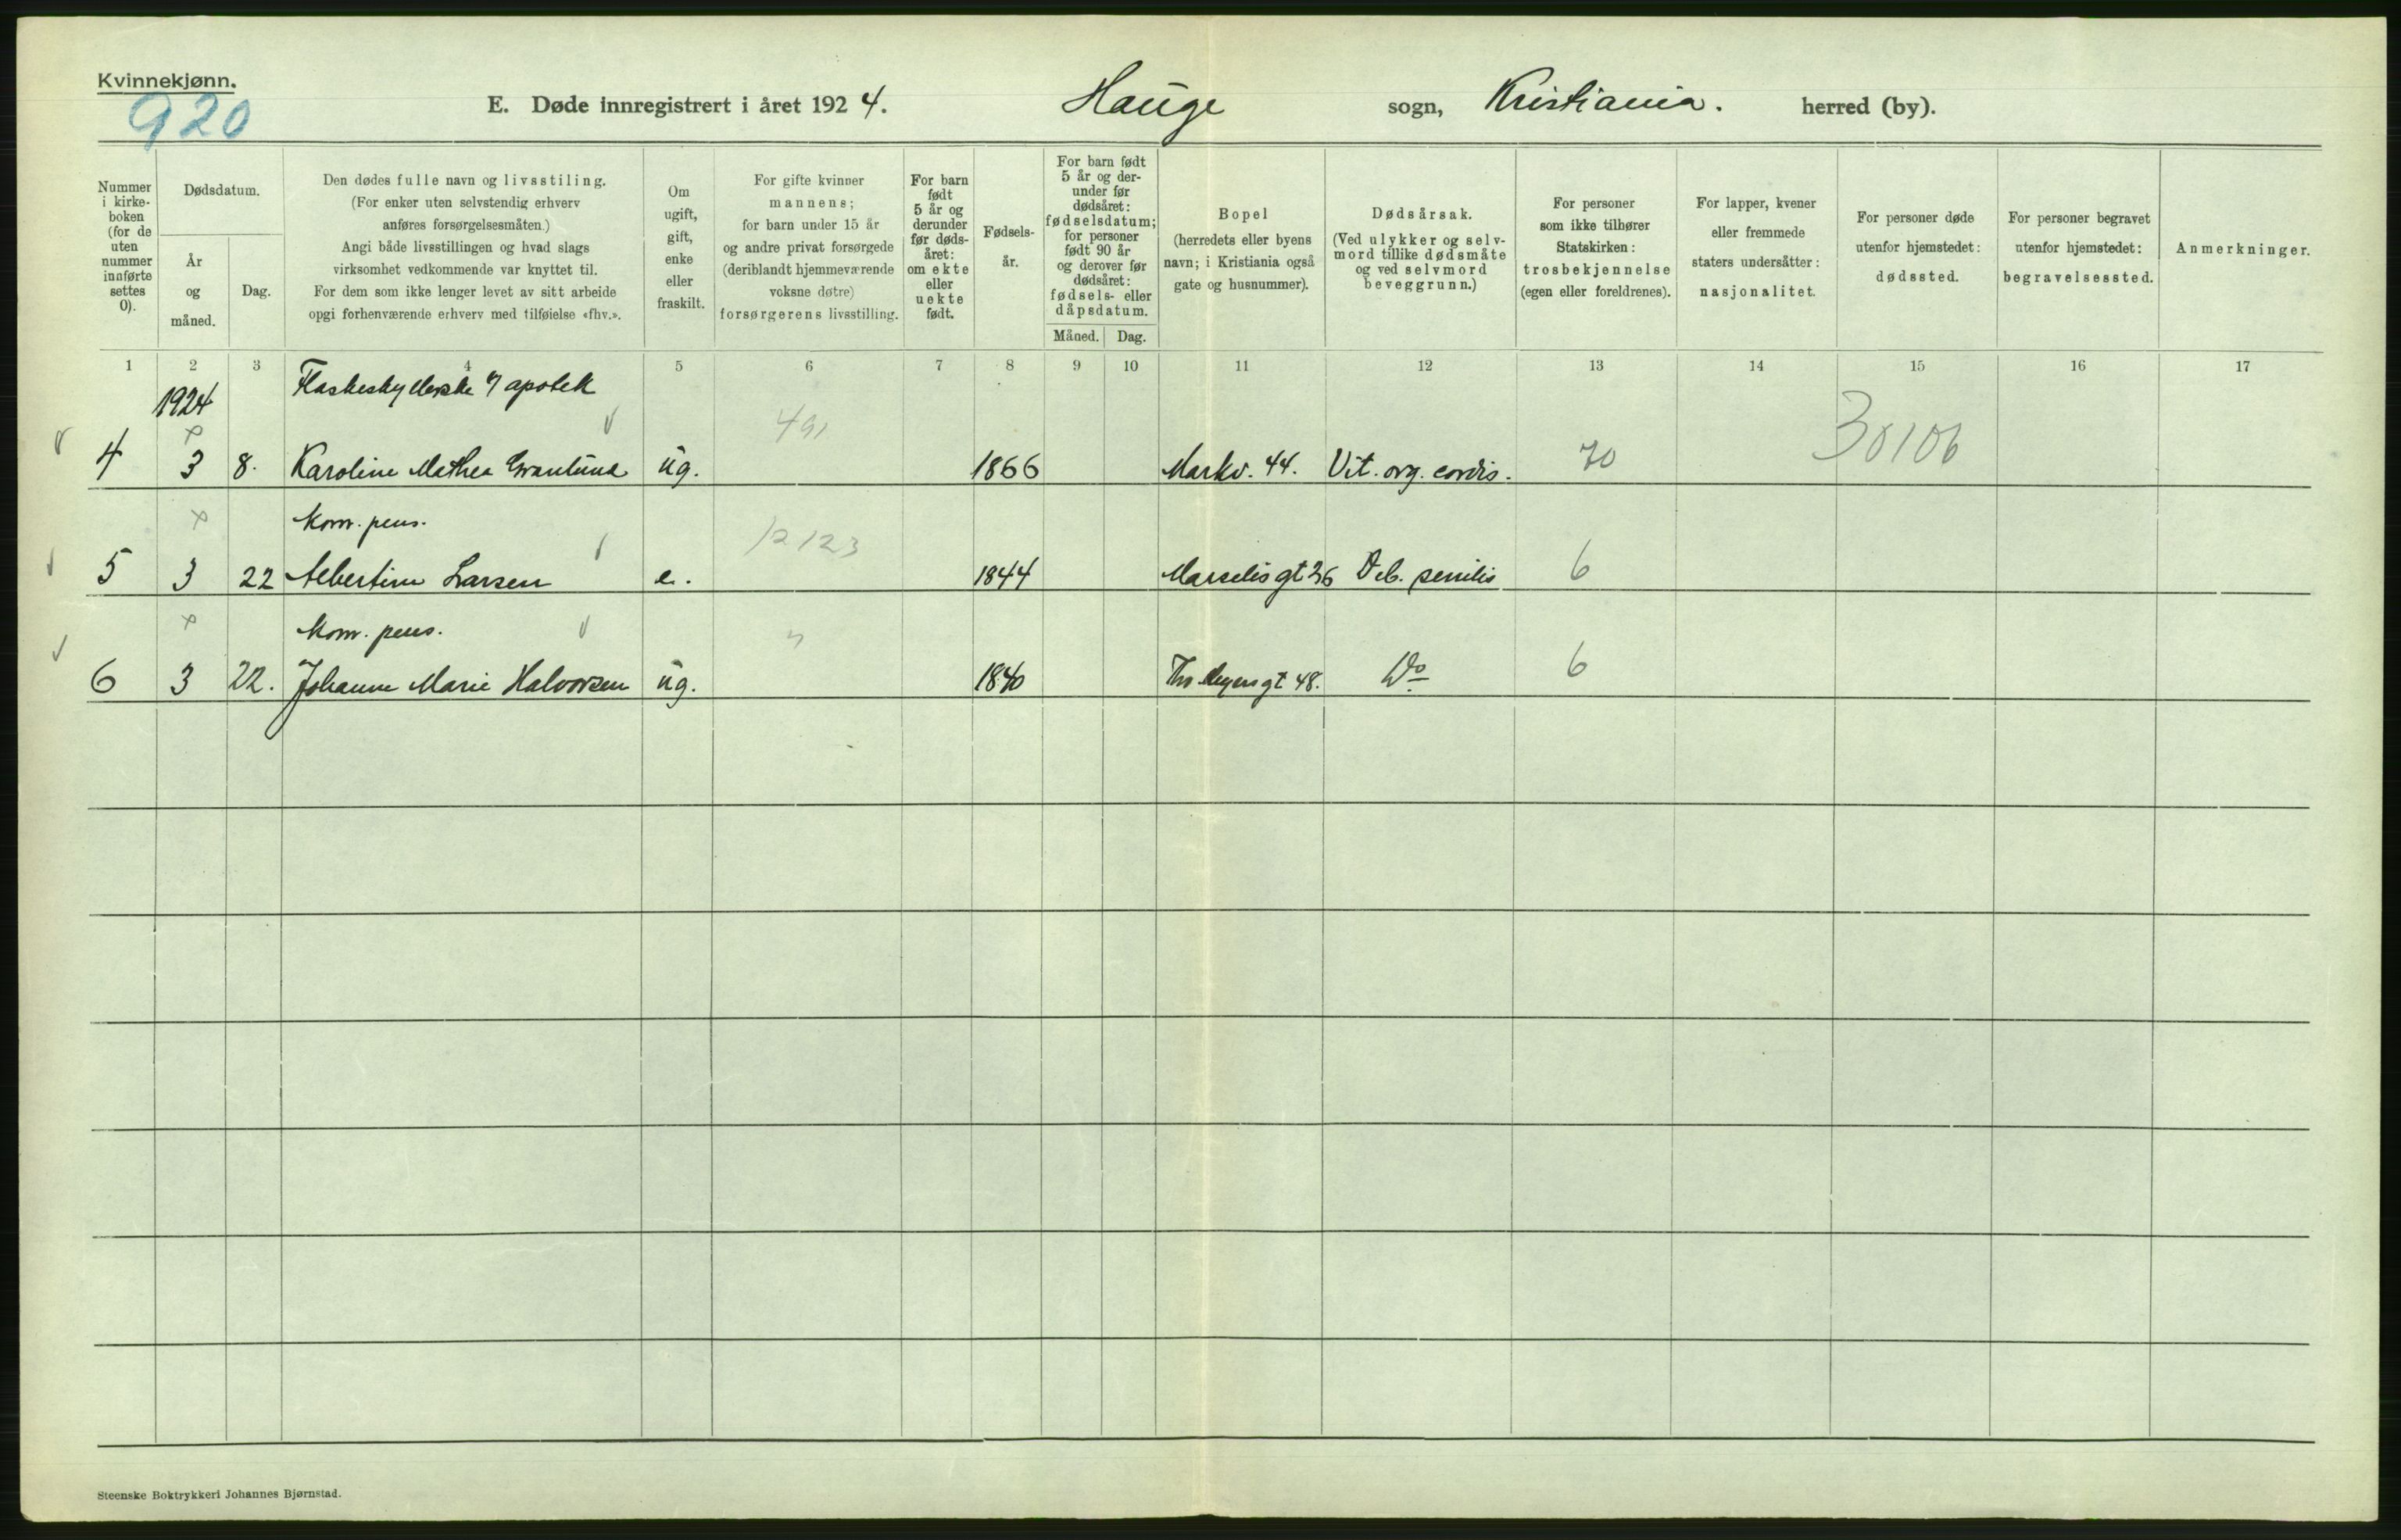 Kvinnekjønn.
920
E. Døde innregistrert i året 1924. Hauge sogn, Kristiania. herred (by).
Nummer i kirkeboken (for de uten nummer innførte settes 0).
Dødsdatum.
År og måned.
Dag.
Den dødes fulle navn og livsstilling.
(For enker uten selvstendig erhverv
anføres forsørgelsesmåten.)
Angi både livsstillingen og hvad slags
virksomhet vedkommende var knyttet til.
For dem som ikke lenger levet av sitt arbeide
opgi forhenværende erhverv med tilføielse «fhv.».
Om
ugift,
gift,
enke
eller
fraskilt.
For gifte kvinner
mannens;
for barn under 15 år
og andre privat forsørgede
(deriblandt hjemmeværende
voksne døtre)
forsørgerens livsstilling.
For barn
født
5 år og
derunder
før døds-
året:
om ekte
eller
uekte
født.
Fødsels-
år.
For barn født
5 år og der-
under før
dødsåret:
fødselsdatum;
for personer
født 90 år
og derover før
dødsåret:
fødsels- eller
dåpsdatum.
Måned. Dag.
Bopel
(herredets eller byens
navn; i Kristiania også
gate og husnummer).
Dødsårsak.
(Ved ulykker og selv-
mord tillike dødsmåte
og ved selvmord
beveggrunn.)
For personer
som ikke tilhører
Statskirken:
trosbekjennelse
(egen eller foreldrenes).
For lapper, kvener
eller fremmede
staters undersåtter:
nasjonalitet.
For personer døde
utenfor hjemstedet:
dødssted.
For personer begravet
utenfor hjemstedet:
begravelsessted.
Anmerkninger.
1 2 3 4 5 6 7 8 9 10 11 12 13 14 15 16 17
1924 Flaskeskyllerske v/ apotek
491
4 3 8. Karoline Mathea Granlund ug. 1866 Markv. 44. Vit. org. cordis. 70 30106
Kom. pens.
12123
5 3 22 Albertine Larsen e. 1844 Marselisgt 26 Deb. senilis 6
Kom. pens.
"
6 3 22. Johanne Marie Halvorsen ug. 1840 Thv. Meyersgt 48. Do 6
Steenske Boktrykkeri Johannes Bjørnstad.